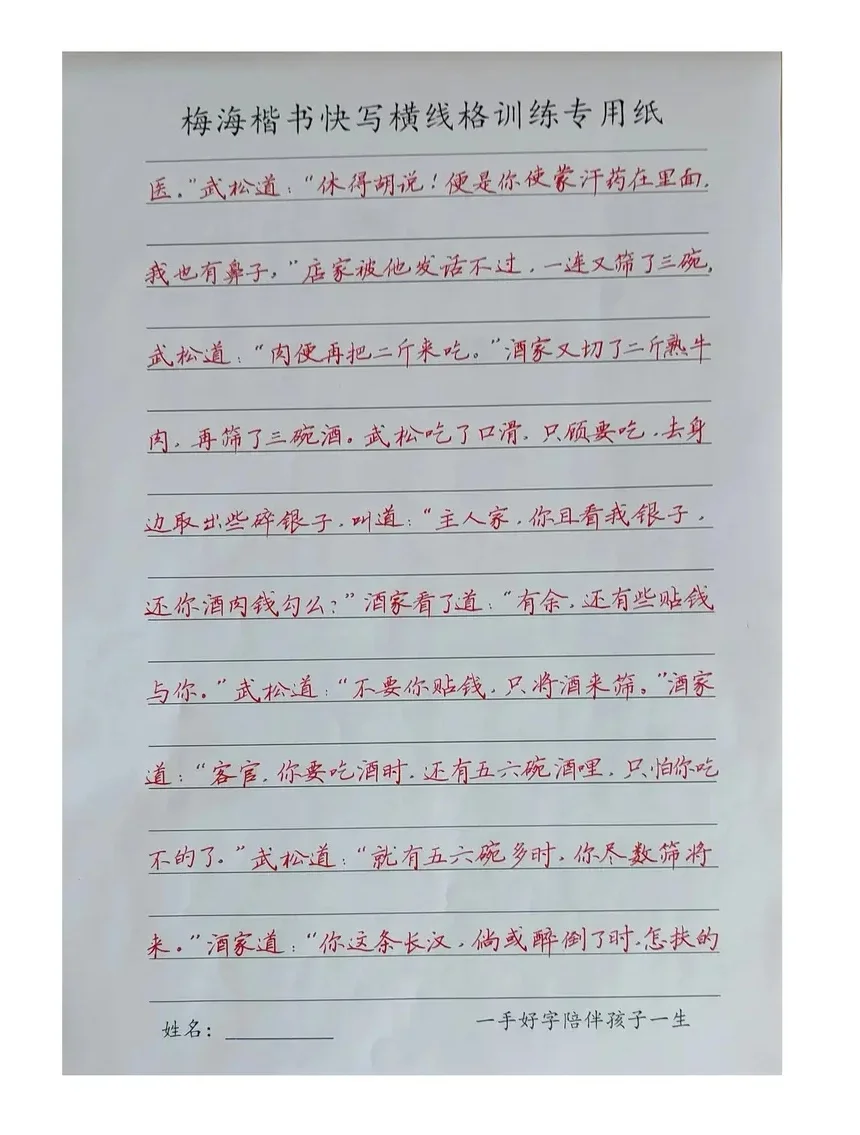 梅海楷书快写横线格训练专用纸
医。”武松道：“休得胡说！便是你使蒙汗药在里面，
我也有鼻子，”店家被他发话不过，一连又筛了三碗，
武松道：“肉便再把二斤来吃。”酒家又切了二斤熟牛
肉，再筛了三碗酒。武松吃了口滑，只顾要吃，去身
边取出些碎银子，叫道：“主人家，你且看我银子，
还你酒肉钱勾么？”酒家看了道：“有余，还有些贴钱
与你。”武松道：“不要你贴钱，只将酒来筛。”酒家
道：“客官，你要吃酒时，还有五六碗酒哩，只怕你吃
不的了。”武松道：“就有五六碗多时，你尽数筛将
来。”酒家道：“你这条长汉，倘或醉倒了时，怎扶的
姓名：
一手好字陪伴孩子一生